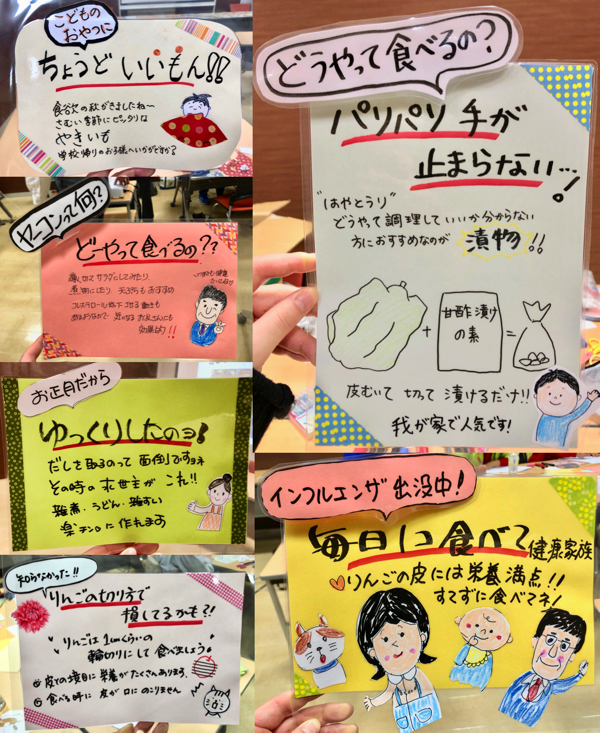 こどもの
おやつに
ちょうどいいもん!!
食欲の秋がきましたね〜
さむい季節にピッタリな
やきいも
学校帰りのお子様へいかがですか?
ヤーコンって何!?
どーやって食べるの??
煮物にしたり 天ぷらもおすすめ
コレステロール低下させる働きも
お正月だから
ゆっくりしたのヨ!
だしを取るのって面倒ですョネ
その時の救世主がこれ!!
雑煮・うどん・雑すい
楽チンに作れます
知らなかった!!
りんごの切り方で
損してるかも?!
りんごは1cmくらいの
輪切りにして食べましょう
皮との境目に栄養がたくさんあります。
食べる時に皮が口にのこりません
どうやって食べるの?
パリパリ手が
止まらない…!
"はやとうり"
どうやって調理していいか分からない
方におすすめなのが 漬物!!
+ 甘酢漬けの素 =
皮むいて切って漬けるだけ!!
我が家で人気です!
インフルエンザ出没中!
毎日に食べて健康家族
りんごの皮には栄養満点!!
すてずに食べてネ!